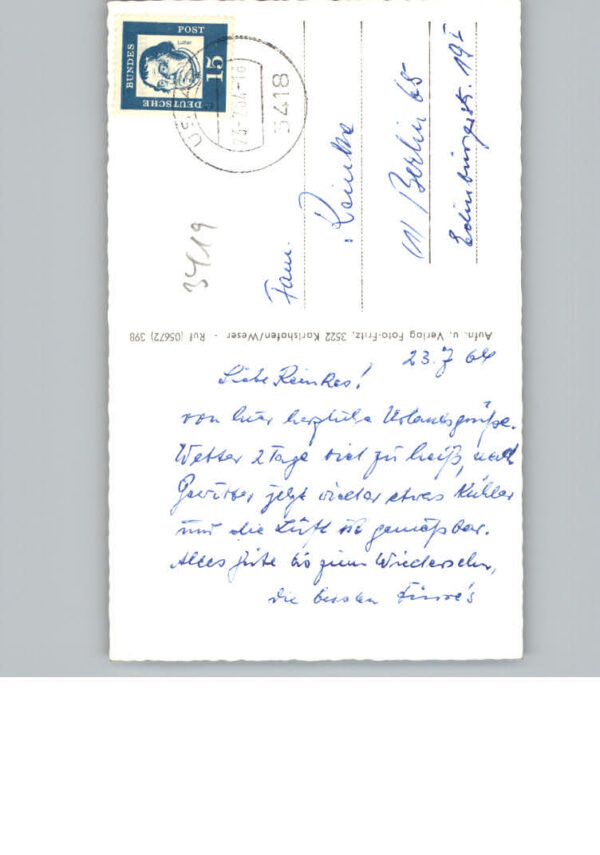 DEUTSCHE
BUNDES
POST
15
Luther
23.-7.64-18
3418
3419
Fam.
Reinke
Berlin 65
Edinburgerstr. 19I
Aufn. u. Verlag Foto-Fritz, 3522 Karlshafen/Weser - Ruf (05672) 398
23.7.64
Liebe Reinkes!
von hier herzliche Urlaubsgrüße.
Wetter 2 Tage viel zu heiß, nach
Gewitter jetzt wieder etwas Kühler
und die Luft ist genießbar.
Alles Gute bis zum Wiedersehn,
die besten